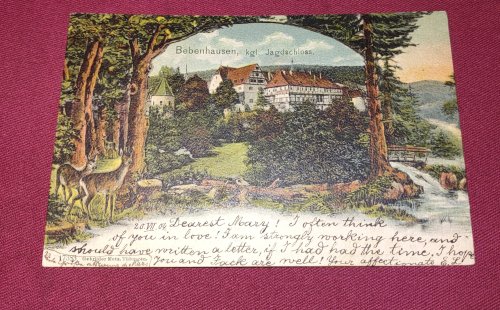 Bebenhausen, kgl. Jagdschloss.
20.VII.04 Dearest Mary! I often think
of you in love! I am strongly working here, and
should have written a letter, if I had had the time. I hope
you and Jack are well! Your affectionate E.L.
Gebrüder Metz, Tübingen.